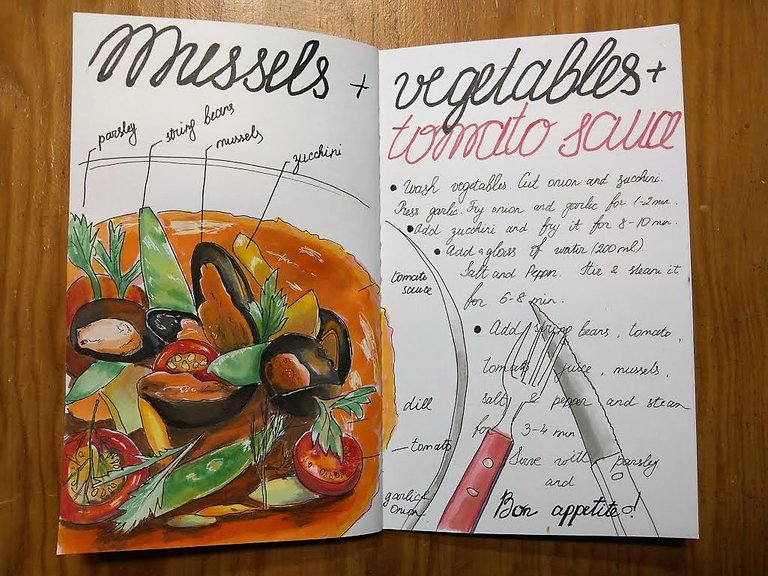 Mussels +
parsley
string beans
mussels
zucchini
vegetables +
tomato sauce
• Wash vegetables. Cut onion and zucchini.
Press garlic. Fry onion and garlic for 1-2 min.
• Add zucchini and fry it for 8-10 min.
• Add a glass of water (200 ml)
Salt and Pepper. Stir & steam it
for 6-8 min.
• Add string beans, tomato,
tomato juice, mussels,
salt & pepper and steam
for 3-4 min
Serve with parsley
and
Bon appetite!
tomato
sauce
dill
tomato
garlic &
Onion